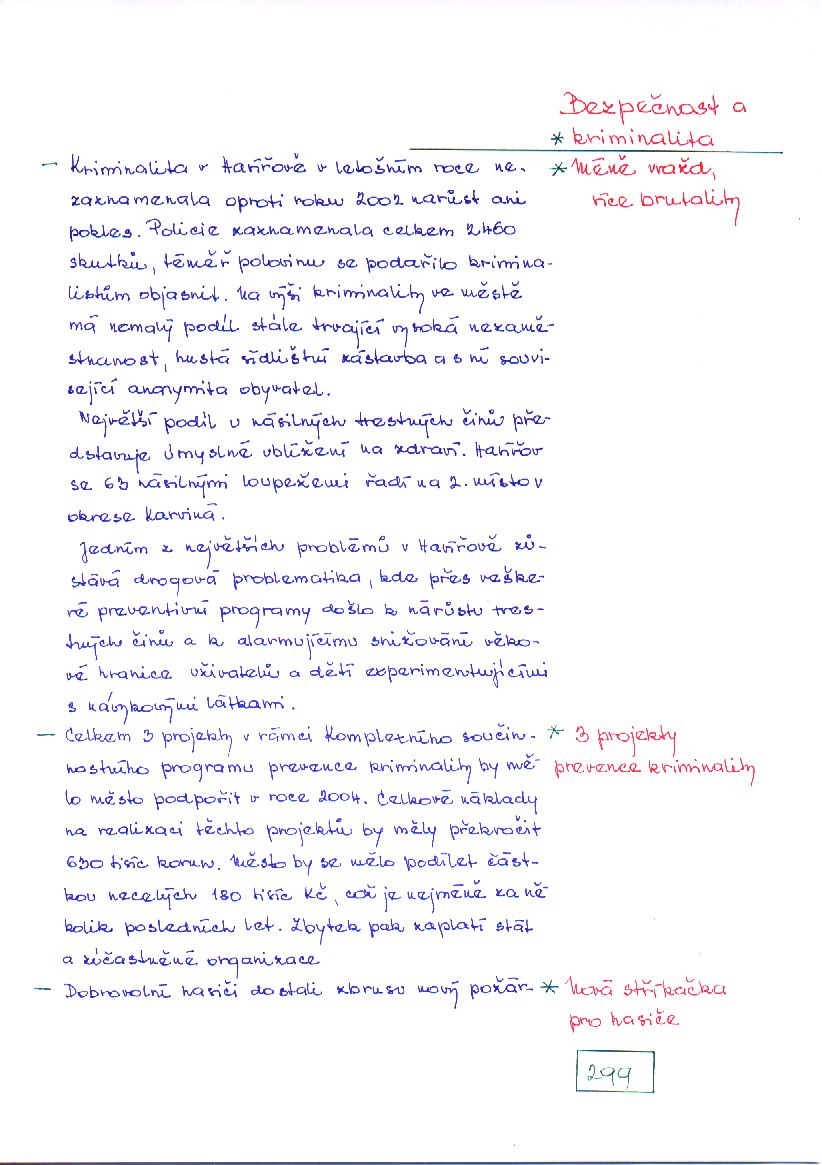 Bezpečnost a
* kriminalita
– Kriminalita v Havířově v letošním roce ne-
* Méně vražd,
zaznamenala oproti roku 2002 nárůst ani
více brutality
pokles. Policie zaznamenala celkem 2460
skutků, téměř polovinu se podařilo krimina-
listům objasnit. Na výši kriminality ve městě
má nemalý podíl stále trvající vysoká nezamě-
stnanost, hustá sídlištní zástavba a s ní souvi-
sející anonymita obyvatel.
Největší podíl u násilných trestných činů pře-
dstavuje úmyslné ublížení na zdraví. Havířov
se 63 násilnými loupežemi řadí na 2. místo v
okrese Karviná.
Jedním z největších problémů v Havířově zů-
stává drogová problematika, kde přes veške-
ré preventivní programy došlo k nárůstu tres-
tných činů a k alarmujícímu snižování věko-
vé hranice uživatelů a dětí experimentujícími
s návykovými látkami.
– Celkem 3 projekty v rámci Kompletního součin-
* 3 projekty
nostního programu prevence kriminality by mě-
prevence kriminality
lo město podpořit v roce 2004. Celkové náklady
na realizaci těchto projektů by měly překročit
630 tisíc korun. Město by se mělo podílet část-
kou necelých 180 tisíc Kč, což je nejméně za ně
kolik posledních let. Zbytek pak zaplatí stát
a zúčastněné organizace
– Dobrovolní hasiči dostali zbrusu nový požár-
* Nová stříkačka
pro hasiče
299